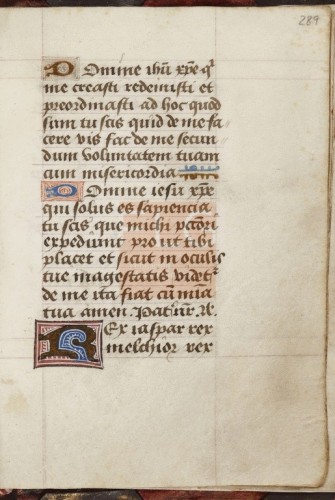 289
Domine ihu xpe q
me creasti redemisti et
preordinasti ad hoc quod
sum tu scis quid de me fa
cere vis fac de me secun
dum voluntatem tuam
cum misericordia
Domine iesu xpe
qui solus es sapiencia
tu scis que michi pctori
expediunt pro ut tibi
placet et sicut in oculis
tue magestatis videt
de me ita fiat cu mia
tua amen. Pat nr. Ac.
Rex iaspar rex
melchior rex